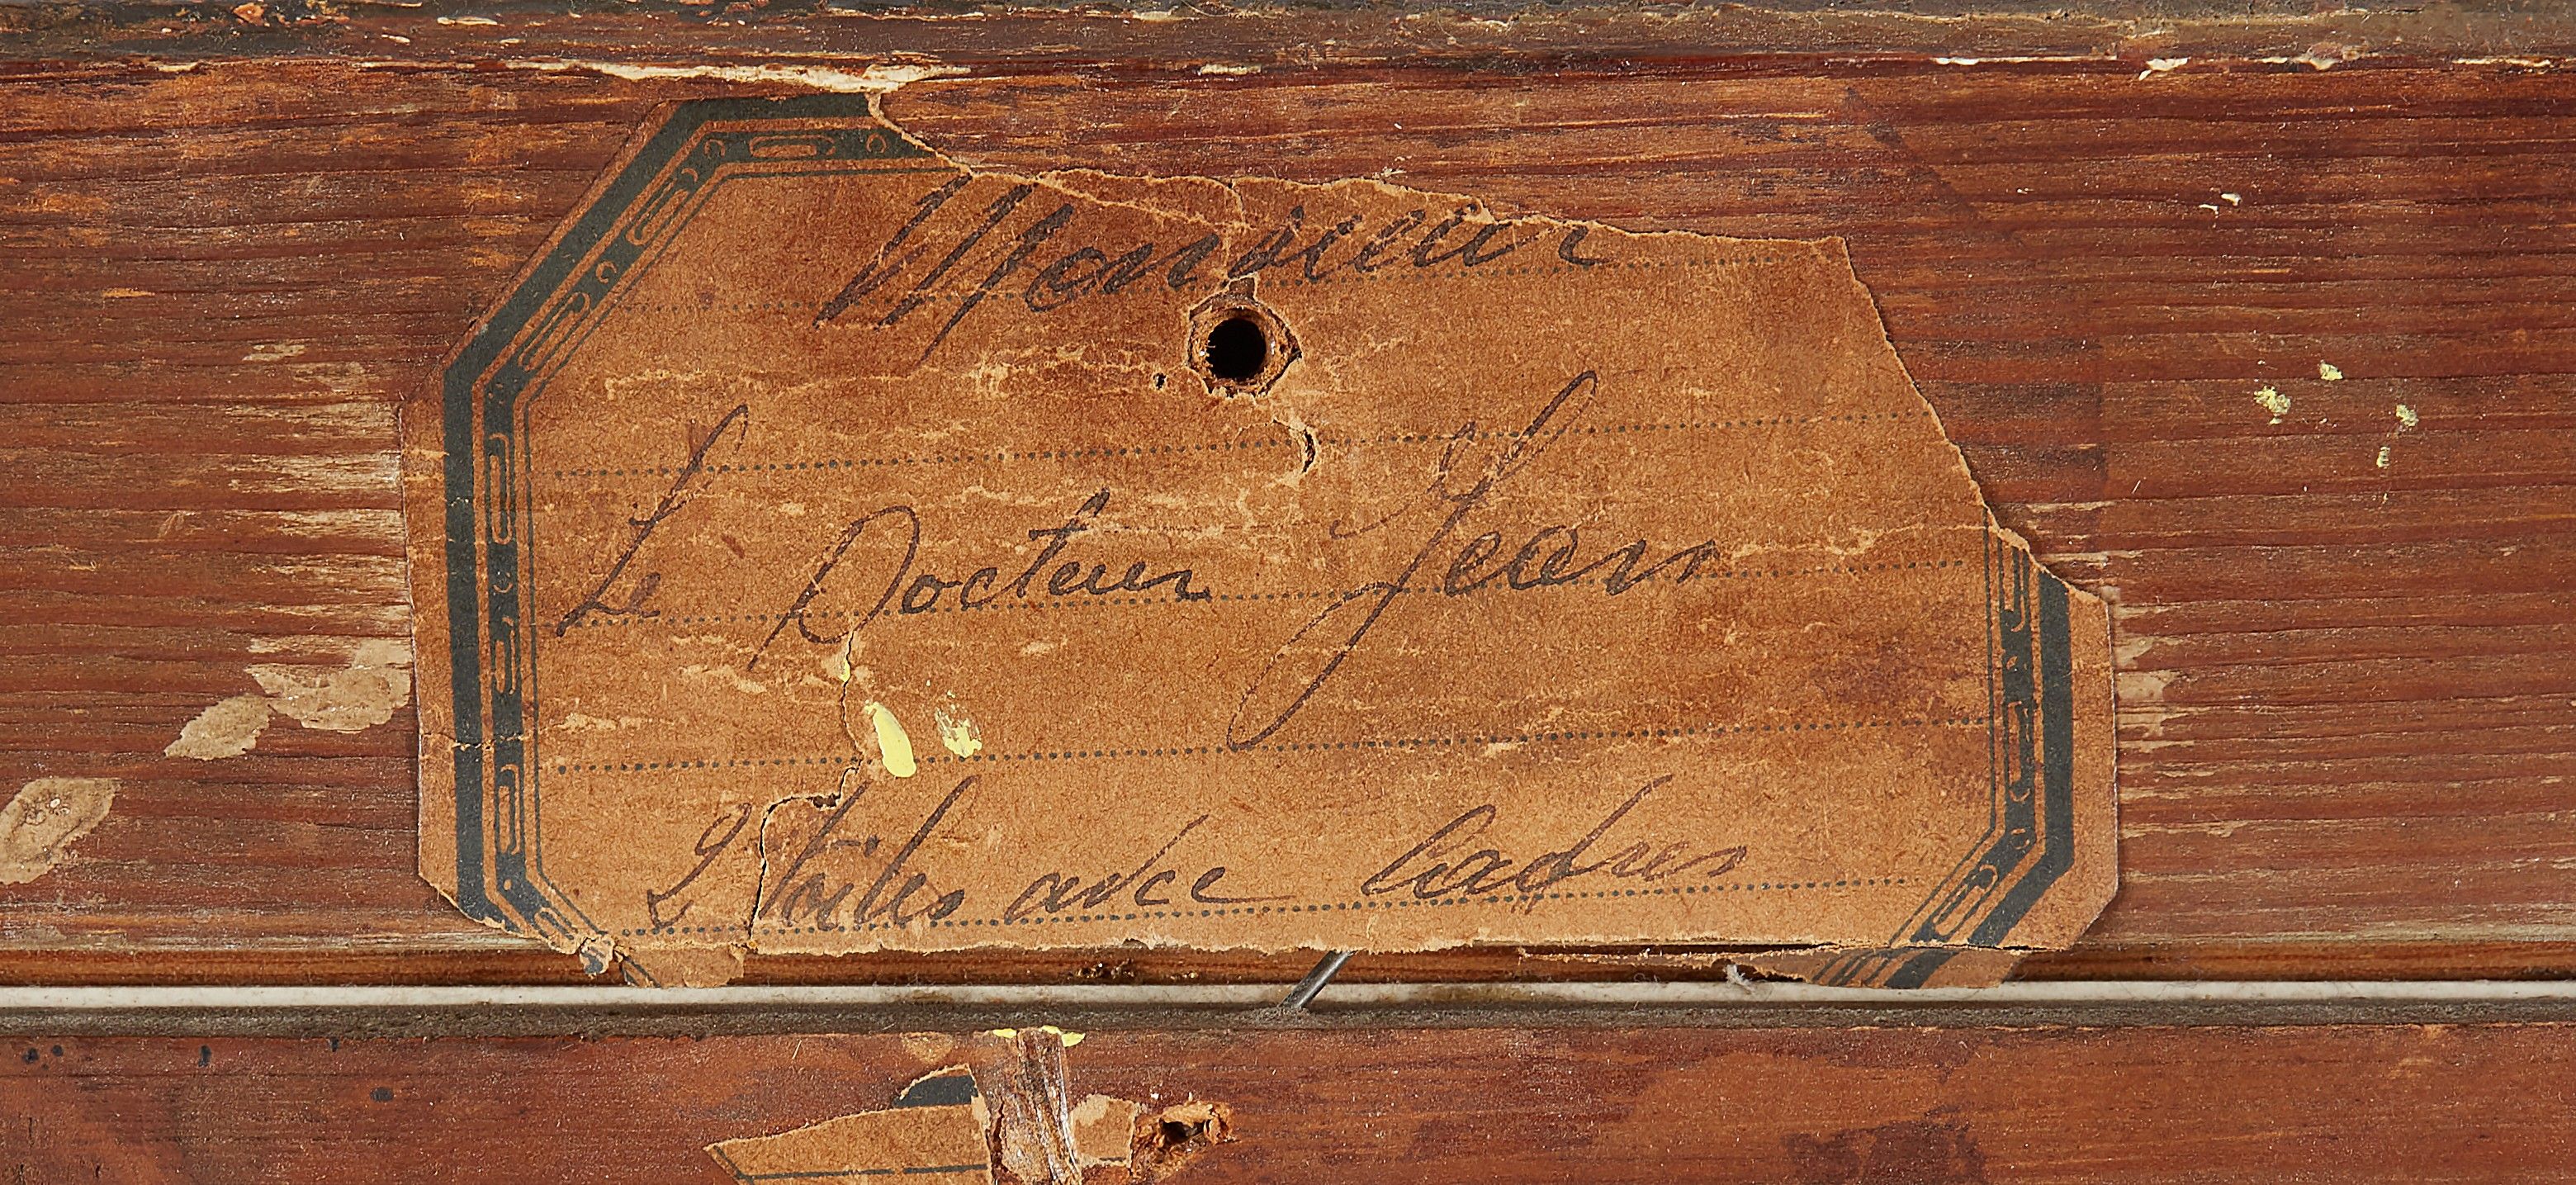 Monsieur
Le Docteur Jean
2 toiles avec Cadres